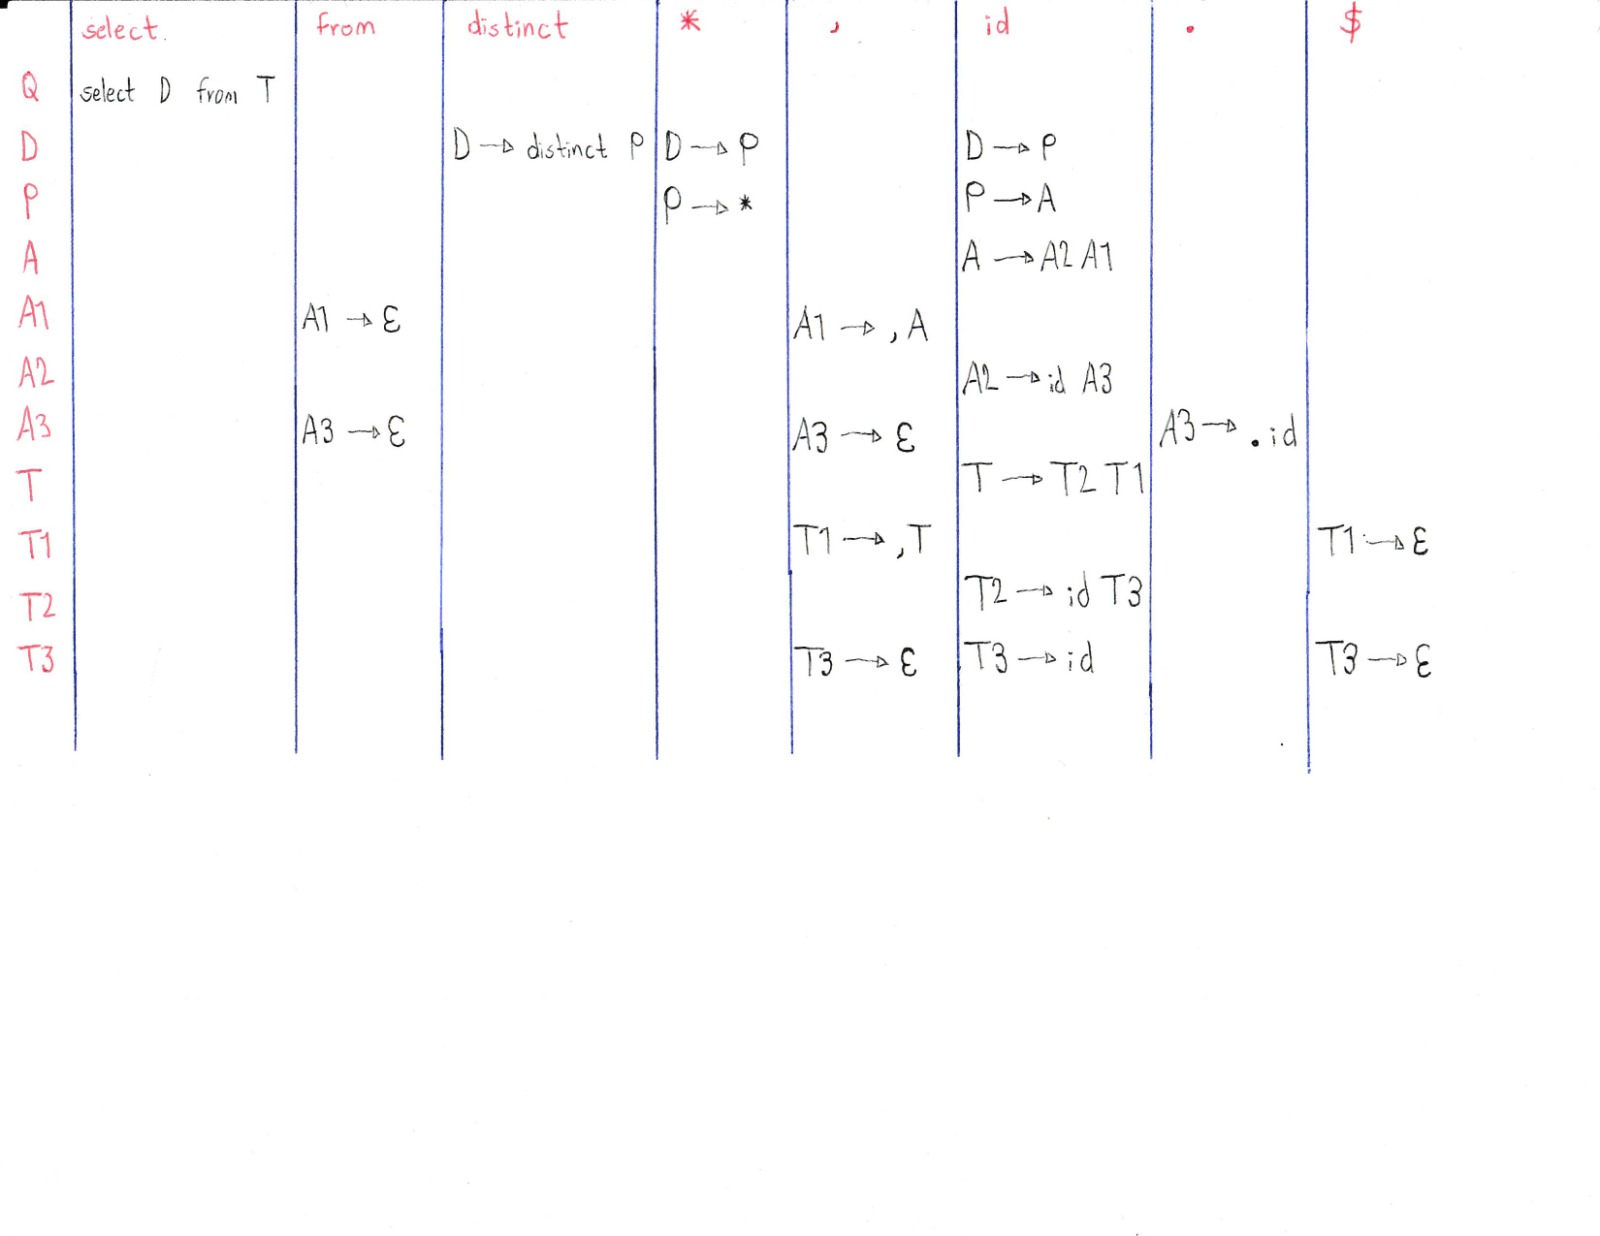 select. from distinct * , id . $
Q select D from T
D D → distinct P D → P D → P
P P → * P → A
A A → A2 A1
A1 A1 → ε A1 → , A
A2 A2 → id A3
A3 A3 → ε A3 → ε A3 → . id
T T → T2 T1
T1 T1 → , T T1 → ε
T2 T2 → id T3
T3 T3 → ε T3 → id T3 → ε